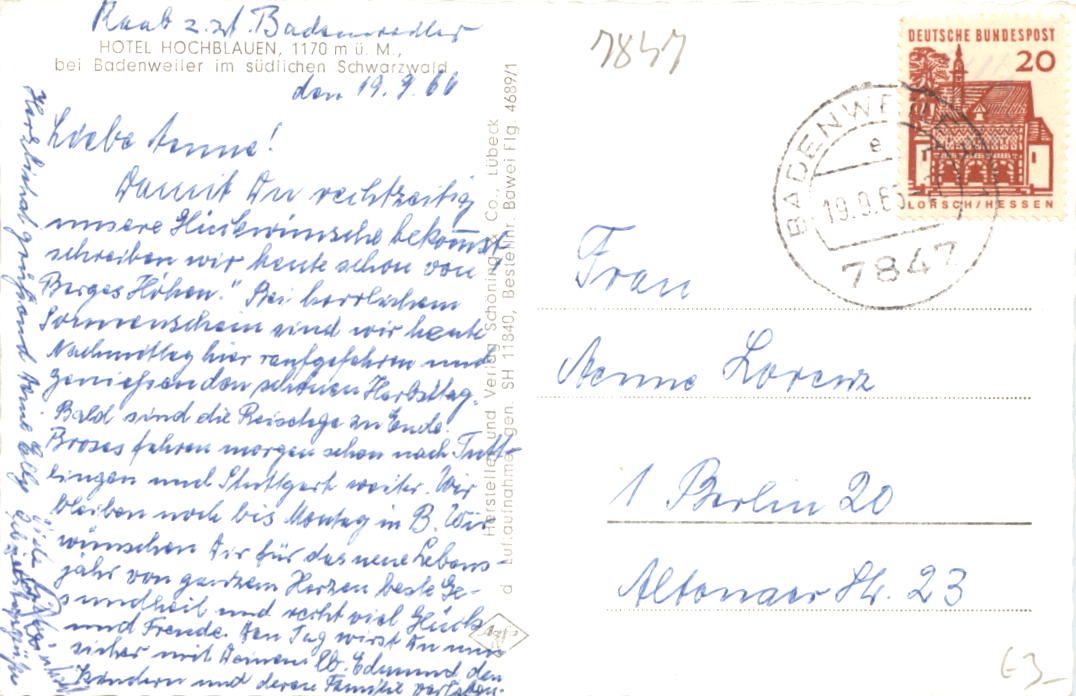 Raab z.zt. Badenweiler
HOTEL HOCHBLAUEN, 1170 m ü. M.,
bei Badenweiler im südlichen Schwarzwald
den 19.9.66
Liebe Aenne!
Damit Du rechtzeitig
unsere Glückwünsche bekommst
schreiben wir heute schon von
Berges Höhen." Bei herrlichem
Sonnenschein sind wir heute
Nachmittag hier raufgefahren und
geniessen den schönen Herbsttag.
Bald sind die Reisetage zu Ende.
Broses fahren morgen schon nach Tutt-
lingen und Stuttgart weiter. Wir
bleiben noch bis Montag in B. Wir
wünschen Dir für das neue Lebens-
jahr von ganzem Herzen beste Ge-
sundheit und recht viel Glück
und Freude. Den Tag wirst Du nun
sicher mit Deinem lb. Edmund den
Kindern und deren Familie verleben.
Herzlichst grüssend Deine Elly
Viele
Geburtstagsgrüße
Hersteller und Verlag Schöning & Co., Lübeck
d Luftaufnahme gen. SH 11840, Bestellnr. Bawei Flg. 4689/1
7847
DEUTSCHE BUNDESPOST
20
LORSCH/HESSEN
BADENWE
e
19.9.66
7847
Frau
Aenne Lorenz
1 Berlin 20
Altonaer Str. 23
63-